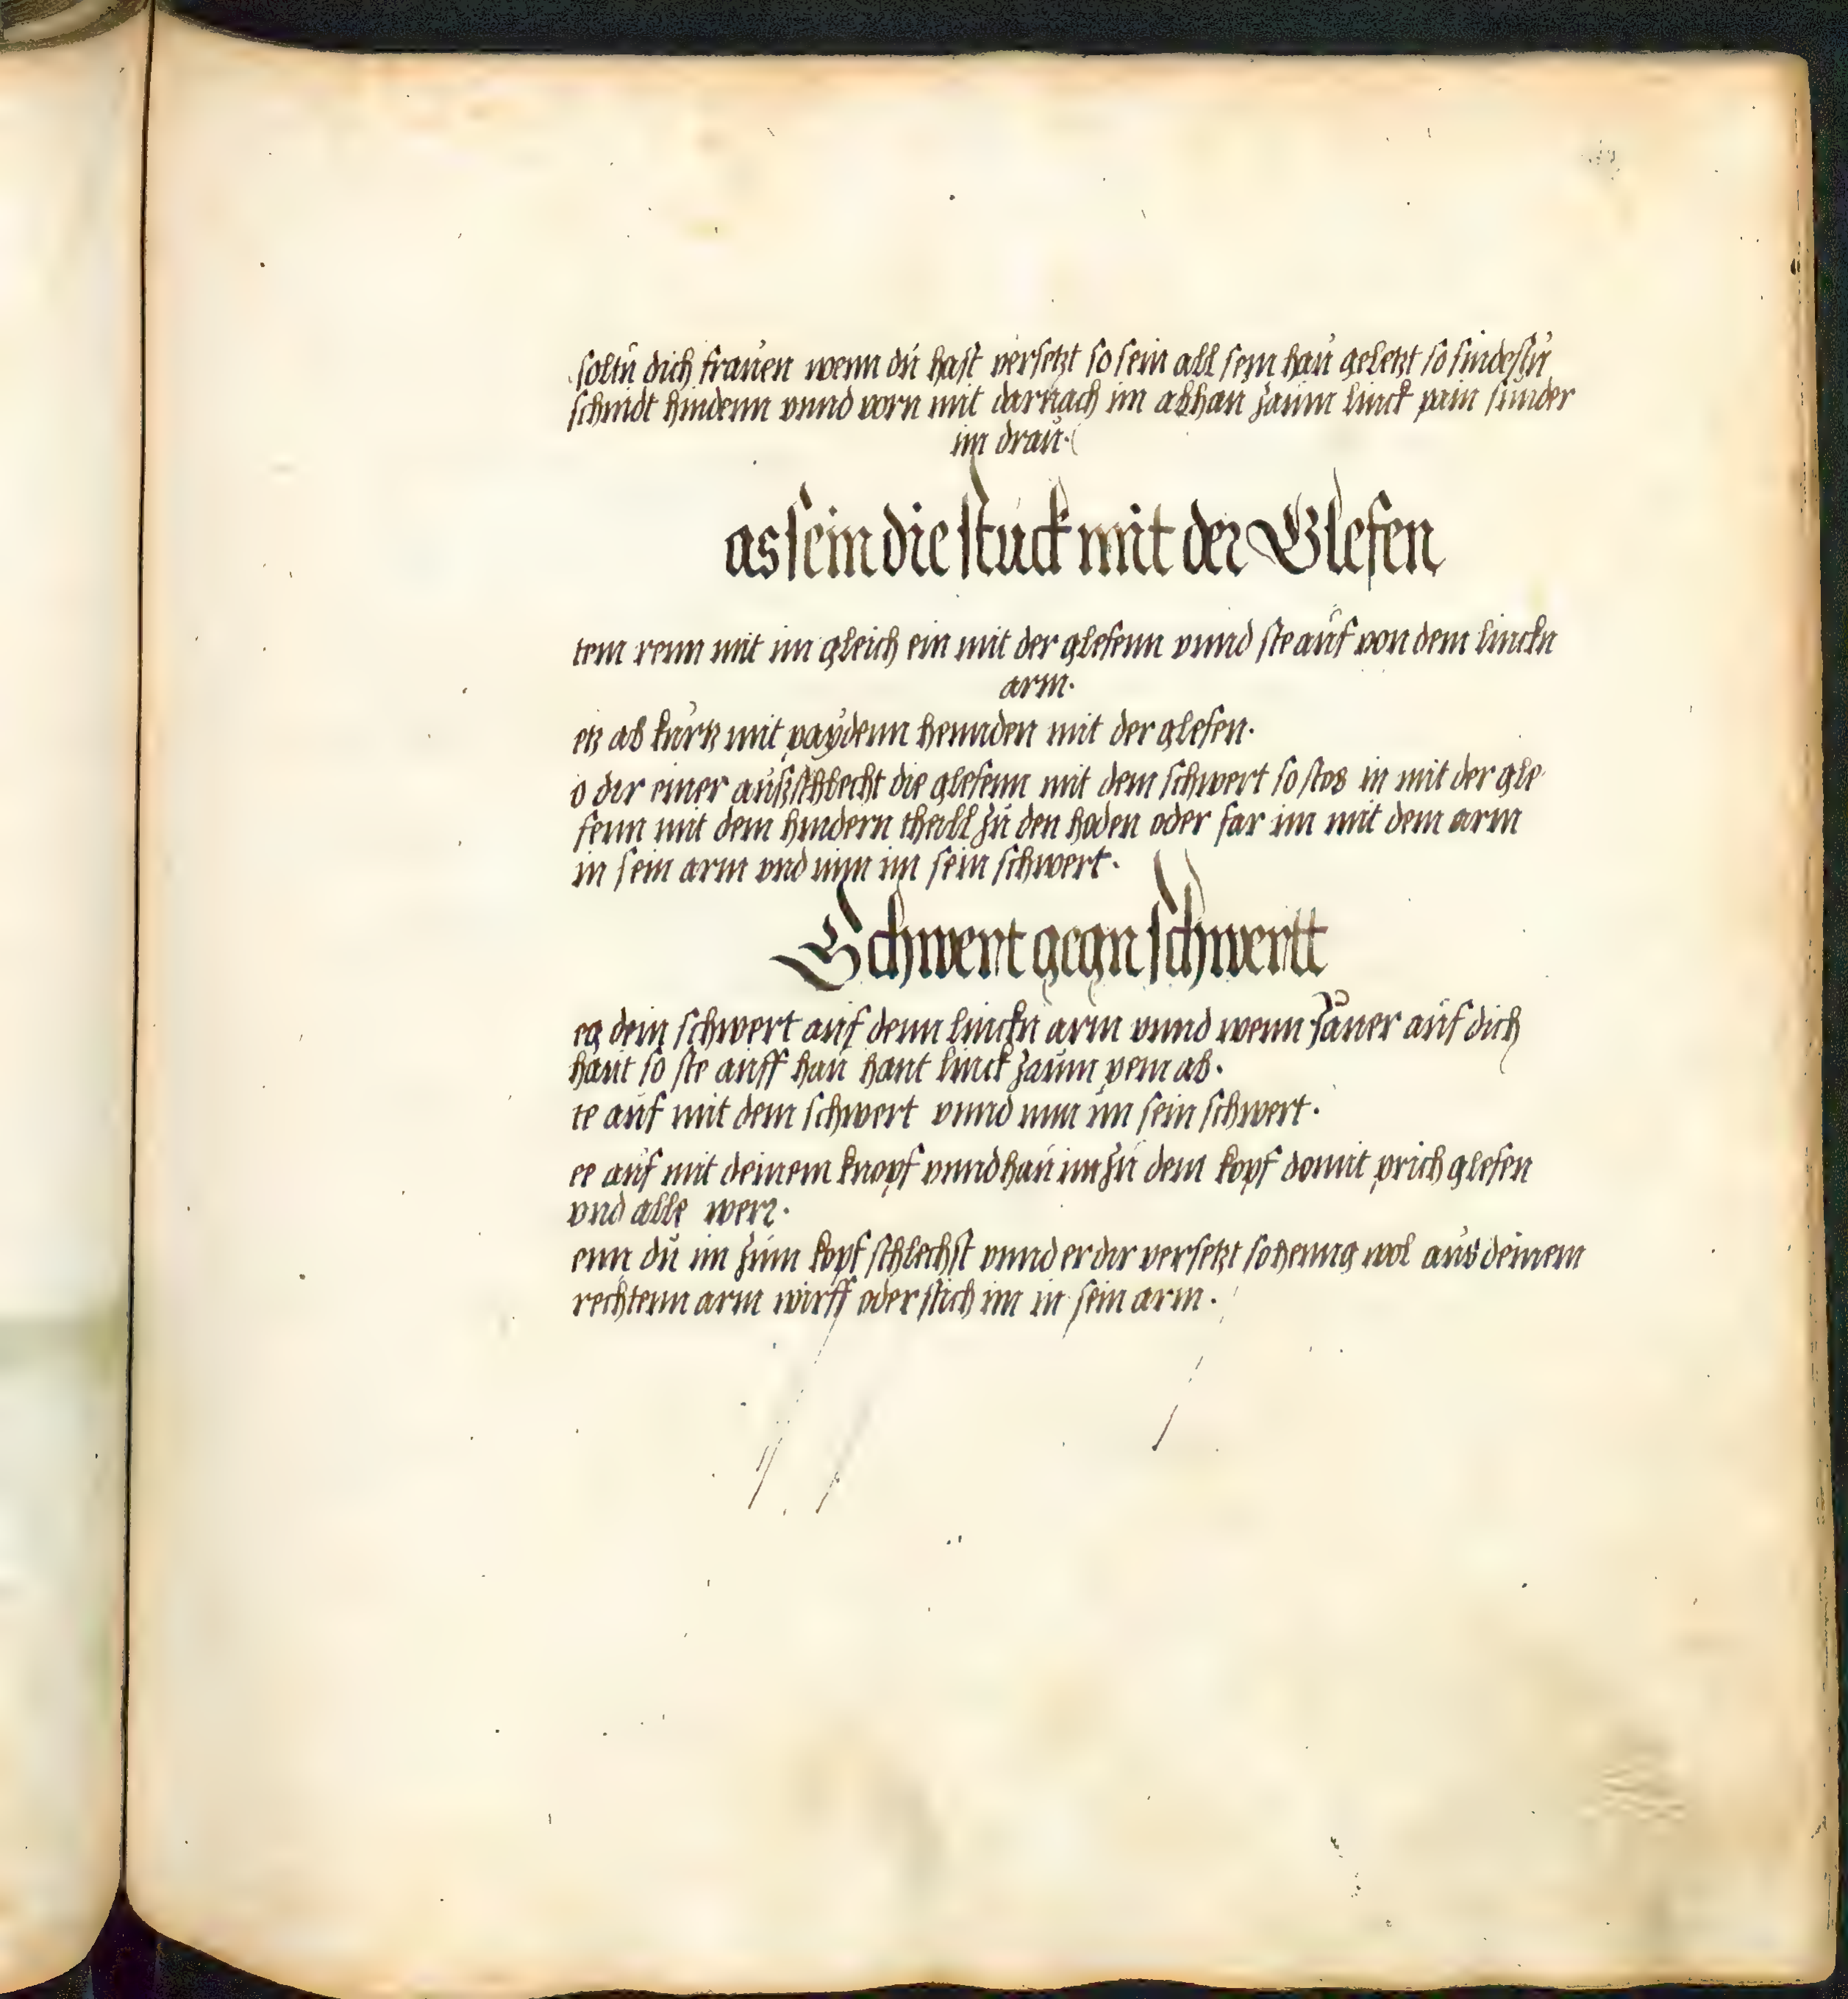 soltu dich frauen wenn du hast versetzt so sein all sein hau geletzt so findestu
schnidt hindenn vnnd vorn mit darnach im abhau zaum linck pain sinder
im drau.
as sein die stuck mit der Glefen
tem renn mit im gleich ein mit der glefenn vnnd ste auf von dem linckn
arm.
etz ab kurtz mit paydenn hennden mit der glefen.
o dir einer außschlecht die glefenn mit dem schwert so stos in mit der gle
fenn mit dem hindern theill zu den hoden oder far im mit dem arm
in sein arm vnd nim im sein schwert.
Schwert gegn schwertt
eg dein schwert auf denn linckn arm vnnd wenn Jäner auf dich
haut so ste auff hau hant linck zaum pein ab.
te auf mit dem schwert vnnd nim im sein schwert.
ee auf mit deinem knopf vnnd hau im zu dem kopf domit prich glefen
vnd alle wer.
enn du im zum kopf schlechst vnnd er dir versetzt so heung wol aus deinem
rechtenn arm wirff oder stich im in sein arm.